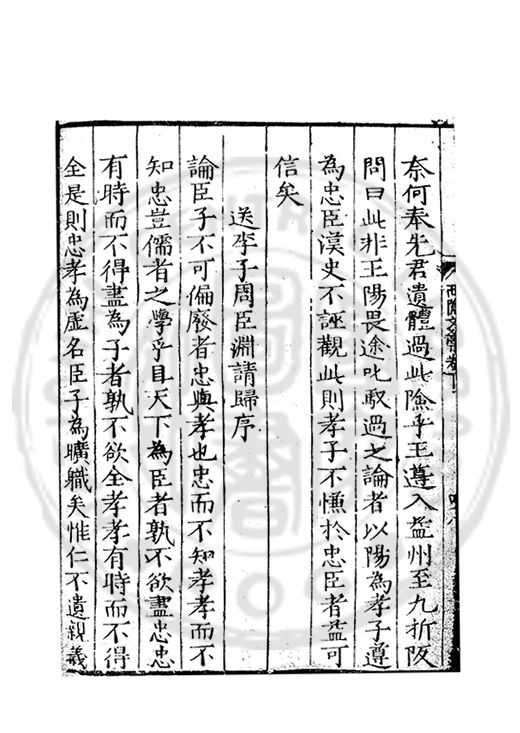 奈何奉先君遺體過此險乎王遵入益州至九折阪
問曰此非王陽畏途叱馭過之論者以陽為孝子遵
為忠臣漢史不誣觀此則孝子不慊於忠臣者益可
信矣
送李子周臣淵請歸序
論臣子不可偏廢者忠與孝也忠而不知孝孝而不
知忠豈儒者之學乎且天下為臣者孰不欲盡忠忠
有時而不得盡為子者孰不欲全孝孝有時而不得
全是則忠孝為虛名臣子為曠職矣惟仁不遺親義